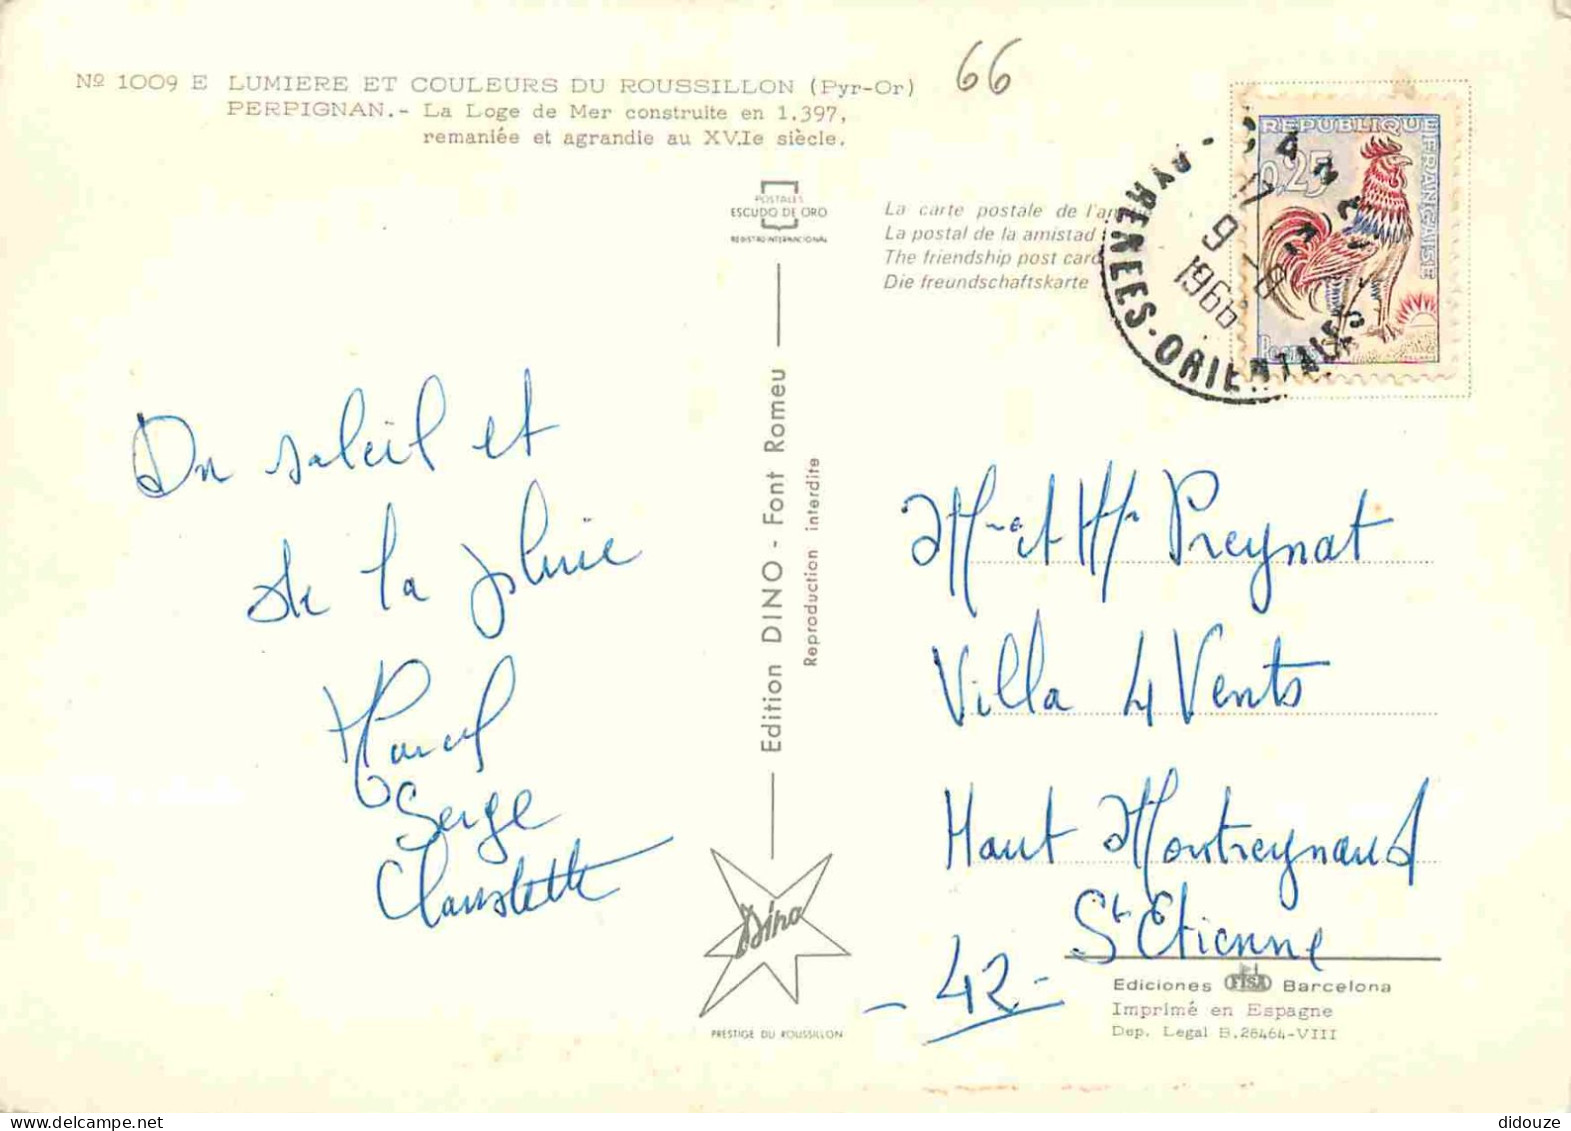 Nº 1009 E LUMIERE ET COULEURS DU ROUSSILLON (Pyr-Or)
PERPIGNAN.- La Loge de Mer construite en 1.397,
remaniée et agrandie au XV.Ie siècle.
66
POSTALES
ESCUDO DE ORO
REGISTRO INTERNACIONAL
La carte postale de l'am
La postal de la amistad
The friendship post card
Die freundschaftskarte
REPUBLIQUE FRANÇAISE
0,25
Postes
17
9
1966
PYRENEES-ORIENTALES
Du soleil et
de la pluie
Marcel
Serge
Claudette
Edition DINO - Font Romeu
Reproduction interdite
Dino
PRESTIGE DU ROUSSILLON
Mr et Mme Preynat
Villa 4 Vents
Haut Montreynaud
St Etienne
- 42 -
Ediciones FISA Barcelona
Imprimé en Espagne
Dep. Legal B.28464-VIII
didouze